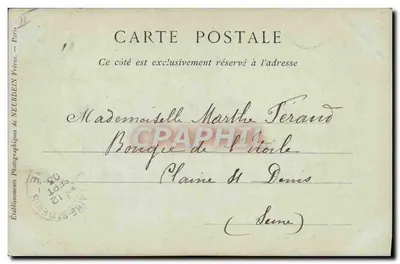 CARTE POSTALE
Ce côté est exclusivement réservé à l'adresse
Mademoiselle Marthe Féraud
Bougie de l'Étoile
Plaine St Denis
(Seine)
Etablissements Photographiques de NEURDEIN Frères. — Paris
12
SEPT
03